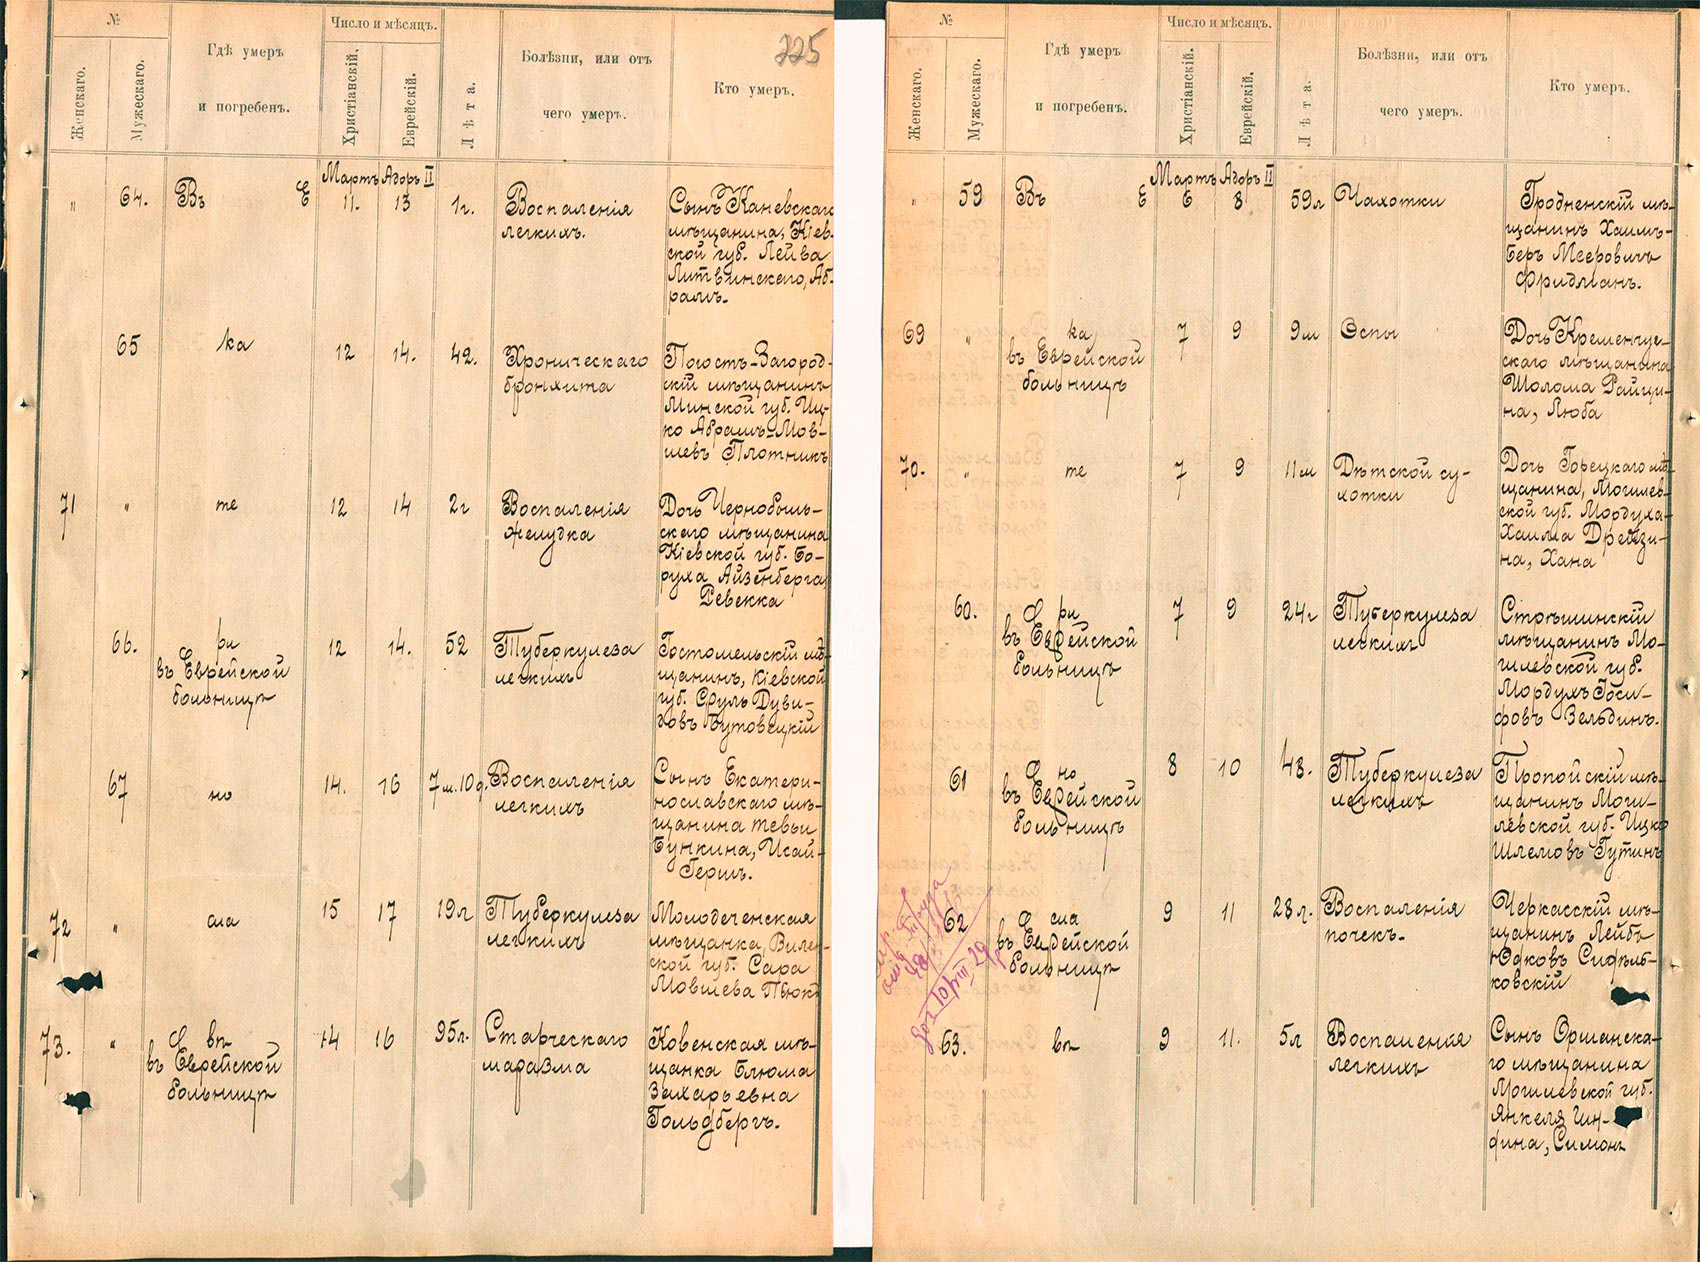 №
Женскаго.
Мужескаго.
Гдѣ умеръ
и погребенъ.
Число и мѣсяцъ.
Христіанскій.
Еврейскій.
Лѣта.
Болѣзни, или отъ
чего умеръ.
Кто умеръ.
225
Мартъ Адоръ II
" 64. Въ Е 11. 13 1г. Воспаленія
легкихъ.
Сынъ Каневскаго
мѣщанина, Кіев-
ской губ. Лейва
Литвинскаго, Аб-
рамъ.
65 ка 12 14. 42. Хроническаго
бронхита
Погостъ-Загород-
скій мѣщанинъ
Минской губ. Иц-
ко Абрамъ-Мов-
шевъ Плотникъ
71 " те 12 14 2г Воспаленія
желудка
Дочь Чернобыль-
скаго мѣщанина
Кіевской губ. Бо-
руха Айзенберга,
Ревекка
66. ри
въ Еврейской
больницѣ
12 14. 52 Туберкулеза
легкихъ
Гостомельскій мѣ-
щанинъ, Кіевской
губ. Сруль Дуви-
довъ Бутовецкій
67 но 14. 16 7м.10д. Воспаленія
легкихъ
Сынъ Екатери-
нославскаго мѣ-
щанина Тевьи
Бункина, Исай-
Герш.
72 " сла 15 17 19л Туберкулеза
легкихъ
Молодеченская
мѣщанка, Вилен-
ской губ. Сара
Мовшева
73. " Е въ
въ Еврейской
больницѣ
14 16 95л. Старческаго
маразма
Ковенская мѣ-
щанка Блюма
Захарьевна
Гольдбергъ.
№
Женскаго.
Мужескаго.
Гдѣ умеръ
и погребенъ.
Число и мѣсяцъ.
Христіанскій.
Еврейскій.
Лѣта.
Болѣзни, или отъ
чего умеръ.
Кто умеръ.
Мартъ Адоръ II
" 59 Въ Е 6 8 59л Чахотки
Гродненскій мѣ-
щанинъ Хаимъ-
Беръ Мееровичъ
Фридманъ.
69 " ка
въ Еврейской
больницѣ
7 9 9м Оспы
Дочь Кременчуг-
скаго мѣщанина
Шолома Райци-
на, Люба
70. " те 7 9 11м Дѣтской су-
хотки
Дочь Горецкаго мѣ-
щанина, Могилев-
ской губ. Мордуха-
Хаима Дрейзи-
на, Хана
60. Е ри
въ Еврейской
больницѣ
7 9 24г Туберкулеза
легкихъ
Стрѣшинскій
мѣщанинъ Мо-
гилевской губ.
Мордухъ Іоси-
фовъ Зельдинъ.
61 Е но
въ Еврейской
больницѣ
8 10 48. Туберкулеза
легкихъ
Пропойскій мѣ-
щанинъ Моги-
левской губ. Ицко
Шлемовъ Гутинъ
62 Е сла
въ Еврейской
больницѣ
9 11 28л. Воспаленія
почекъ.
Черкасскій мѣ-
щанинъ Лейбъ
Юдковъ
ковскій
63. въ 9 11. 5л Воспаленія
легкихъ
Сынъ Оршанска-
го мѣщанина
Могилевской губ.
Янкеля Цин-
дина, Симонъ